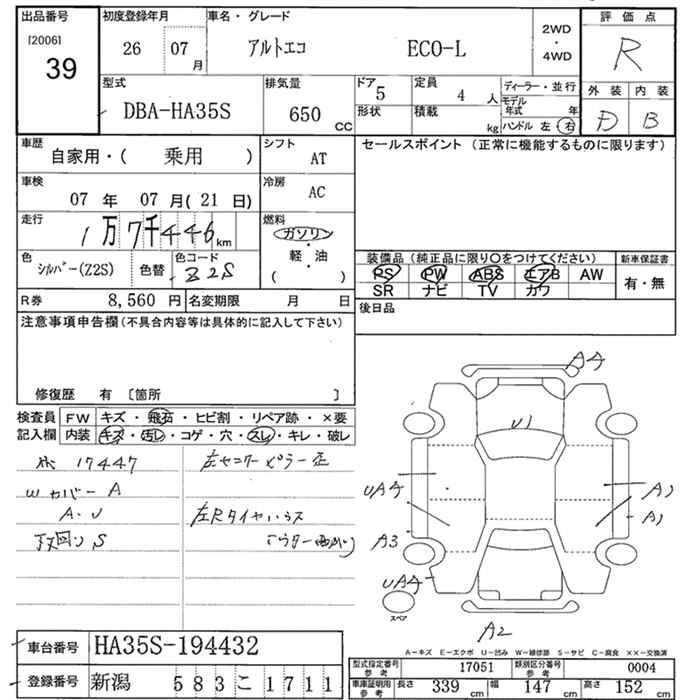 出品番号 初度登録年月 車名・グレード 評価点
[2006] 39
26 07 月 アルトエコ ECO-L 2WD ・ 4WD R
型式 排気量 ドア 定員 ディーラー・並行 外装 内装
DBA-HA35S 650 CC 5 4 人 D B
形状 積載 kg モデル年式 年
ハンドル 左・右
車歴 シフト セールスポイント (正常に機能するものに限ります)
自家用・( 乗用 ) AT
車検 冷房
07 年 07 月(21 日) AC
走行 燃料
1万7千446 km ガソリン・軽・油 ( )
色 色コード
シルバー(Z2S) 色替 Z2S
装備品(純正品に限り○をつけてください) 新車保証書
PS PW ABS エアB AW 有・無
SR ナビ TV カワ
R券 8,560 円 名変期限 月 日 後日品
注意事項申告欄(不具合内容等は具体的に記入して下さい)
修復歴 有 〔箇所 〕
検査員 FW キズ・飛石・ヒビ割・リペア跡・×要
記入欄 内装 キズ・汚レ・コゲ・穴・スレ・キレ・破レ
17447 左センターピラー
Wカバー A
A・U
S
A4
U1
UA4
A3
UA4
A2
スペア
A－キズ E－エクボ U－凹み W－補修跡 S－サビ C－腐食 ××－交換済
車台番号 HA35S-194432
登録番号 新潟 583こ1711
型式指定番号 参考 17051 類別区分番号 参考 0004
車庫証明用 参考 長さ 339 cm 幅 147 cm 高さ 152 cm